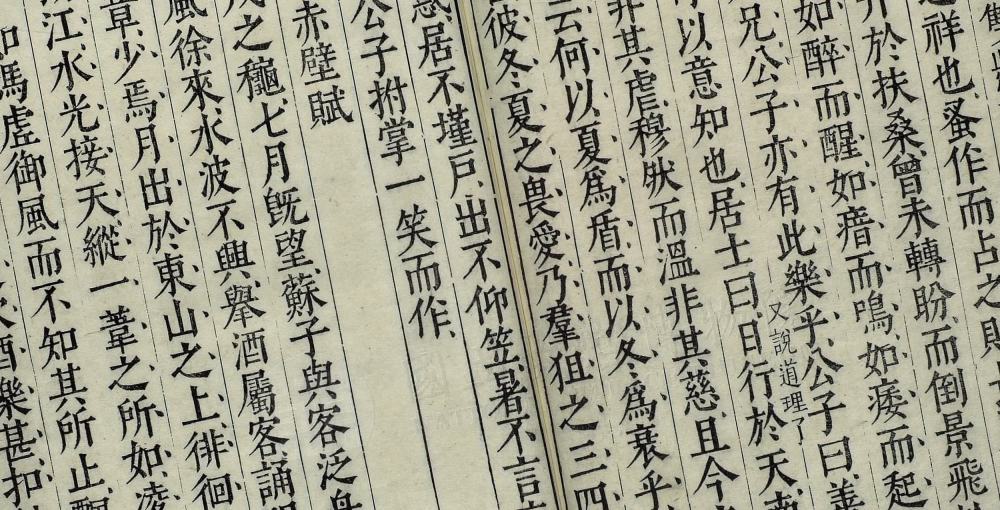 祥也蚤作而占之則
於扶桑曾未轉盼而倒景飛
如醉而醒如瘖而鳴如痿而起
兄公子亦有此樂乎公子曰善
又說道理了
以意知也居士曰日行於天南
非其虐穆然而溫非其慈且今
云何以夏爲盾而以冬爲衰乎
彼冬夏之畏愛乃羣狙之三四
惑居不墐戶出不仰笠暑不言
公子拊掌一笑而作
赤壁賦
之穐七月旣望蘇子與客泛舟
風徐來水波不興舉酒屬客誦
章少焉月出於東山之上徘徊
江水光接天縱一葦之所如凌
如馮虛御風而不知其所止飄
酒樂甚扣